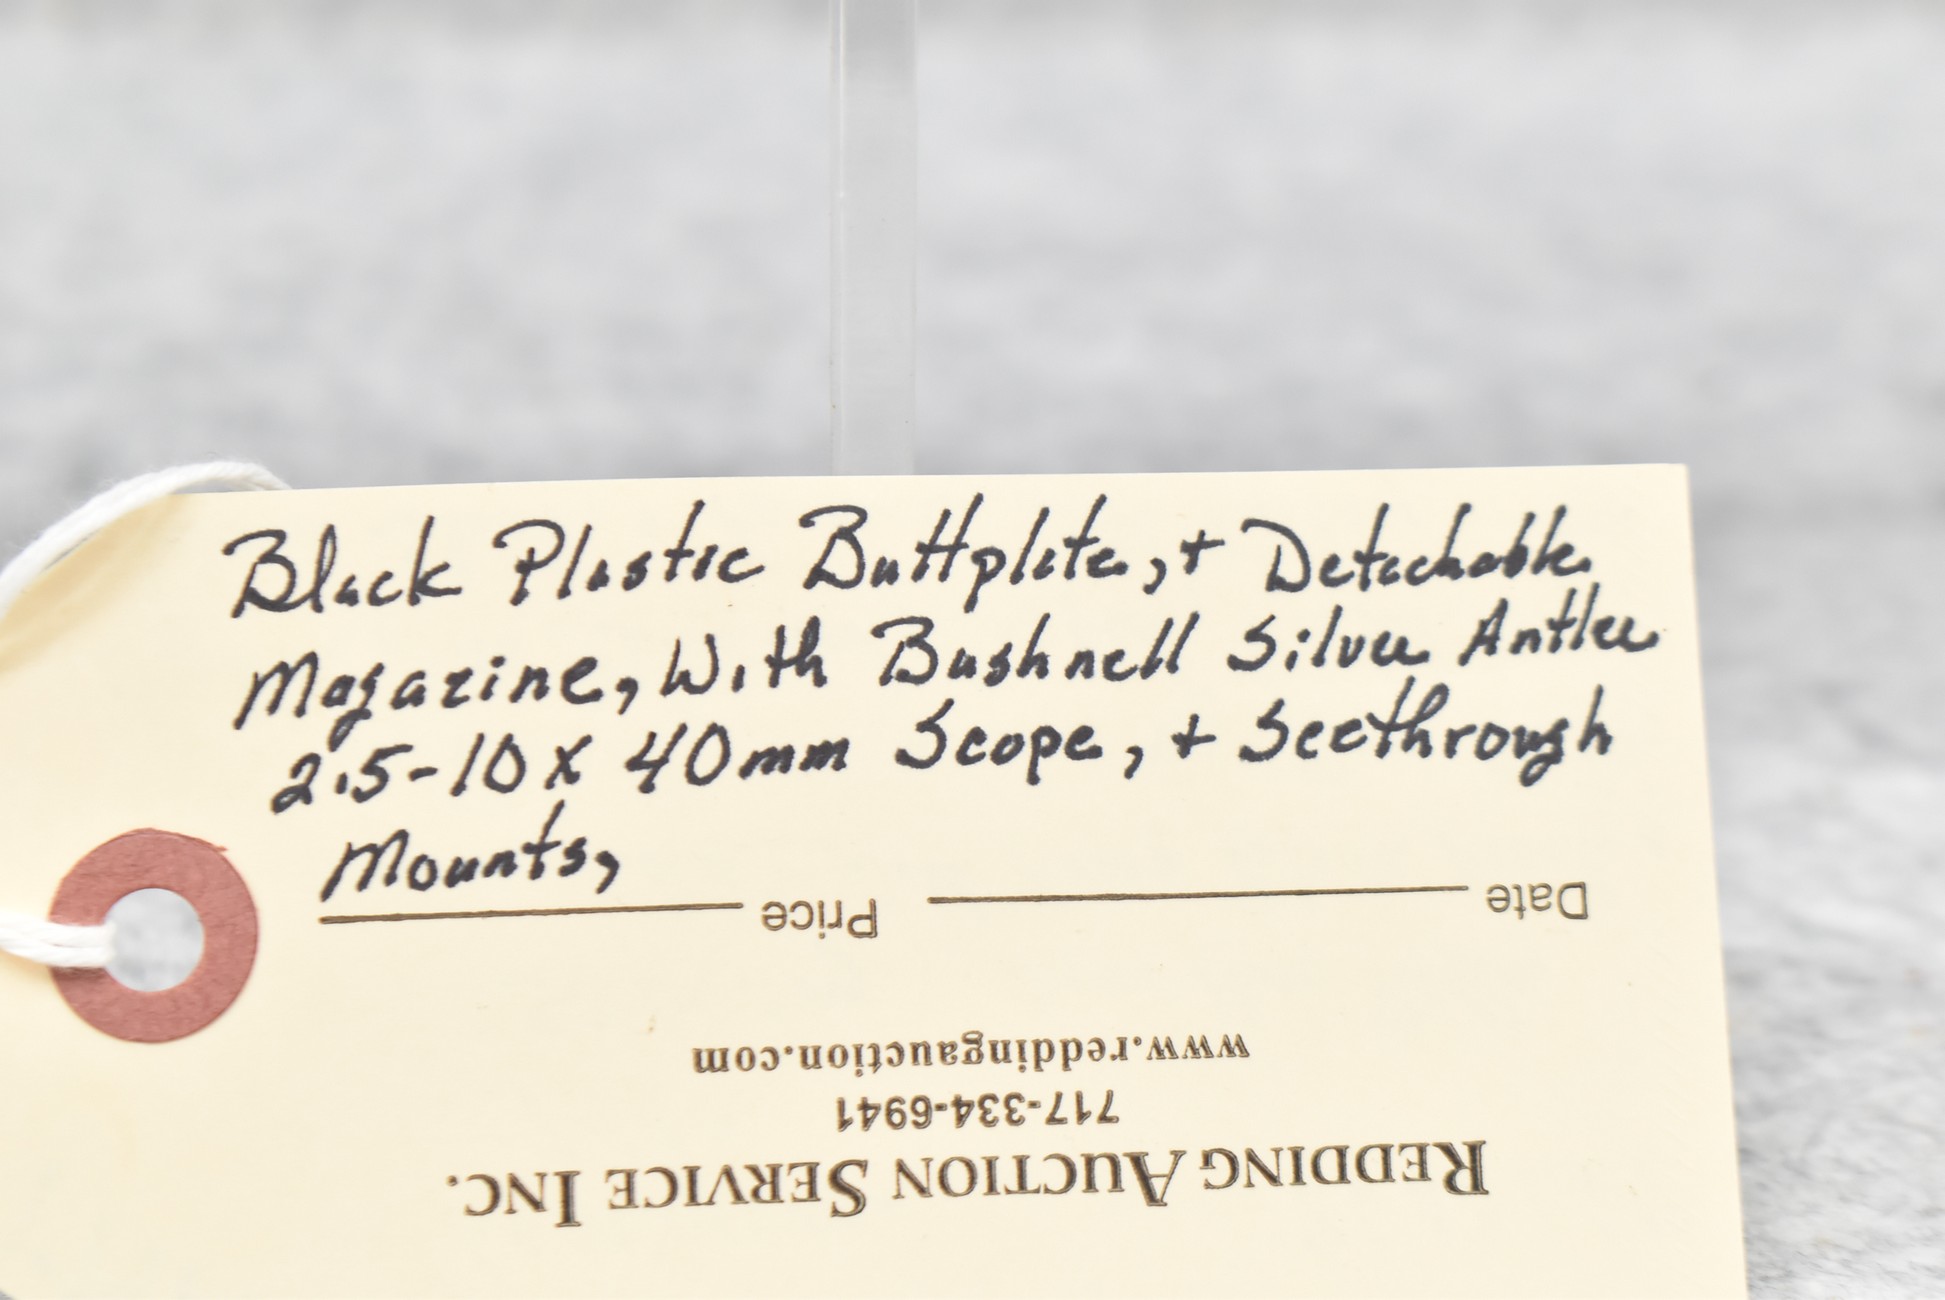 Black Plastic Buttplate, + Detachable
Magazine, With Bushnell Silver Antler
2.5-10 X 40mm Scope, + Seethrough
Mounts,
Date Price
www.reddingauction.com
717-334-6941
REDDING AUCTION SERVICE INC.